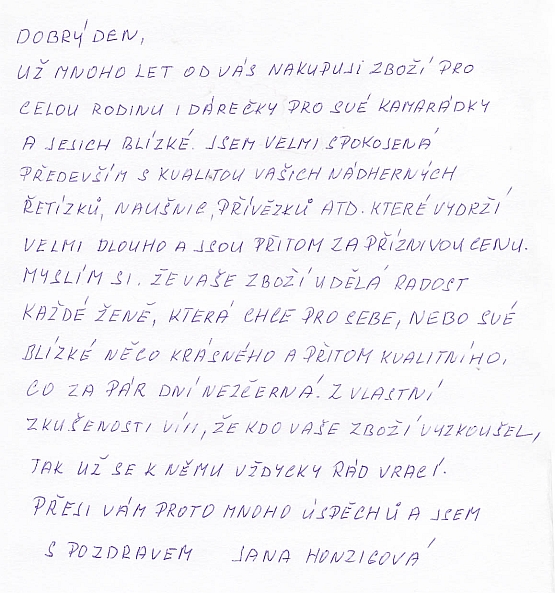 DOBRÝ DEN,
UŽ MNOHO LET OD VÁS NAKUPUJI ZBOŽÍ PRO
CELOU RODINU I DÁREČKY PRO SVÉ KAMARÁDKY
A JEJICH BLÍZKÉ. JSEM VELMI SPOKOJENÁ
PŘEDEVŠÍM S KVALITOU VAŠICH NÁDHERNÝCH
ŘETÍZKŮ, NAUŠNIC, PŘÍVĚZKŮ ATD. KTERÉ VYDRŽÍ
VELMI DLOUHO A JSOU PŘITOM ZA PŘÍZNIVOU CENU.
MYSLÍM SI. ŽE VAŠE ZBOŽÍ UDĚLÁ RADOST
KAŽDÉ ŽENĚ, KTERÁ CHCE PRO SEBE, NEBO SVÉ
BLÍZKÉ NĚCO KRÁSNÉHO A PŘITOM KVALITNÍHO,
CO ZA PÁR DNÍ NEZČERNÁ. Z VLASTNÍ
ZKUŠENOSTI VÍM, ŽE KDO VAŠE ZBOŽÍ VYZKOUŠEL,
TAK UŽ SE K NĚMU VŽDYCKY RÁD VRACÍ.
PŘEJI VÁM PROTO MNOHO ÚSPĚCHŮ A JSEM
S POZDRAVEM JANA HONZIGOVÁ